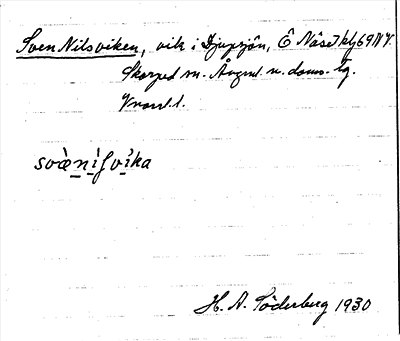 Sven Nilsviken, vik i Djupsjön, Ö Näset kbl 69 NV.
Skorped sn. Ångml. n. doms. tg.
Vnorrl. l.
svæ̀nìʃvìka
H. A. Söderberg 1930